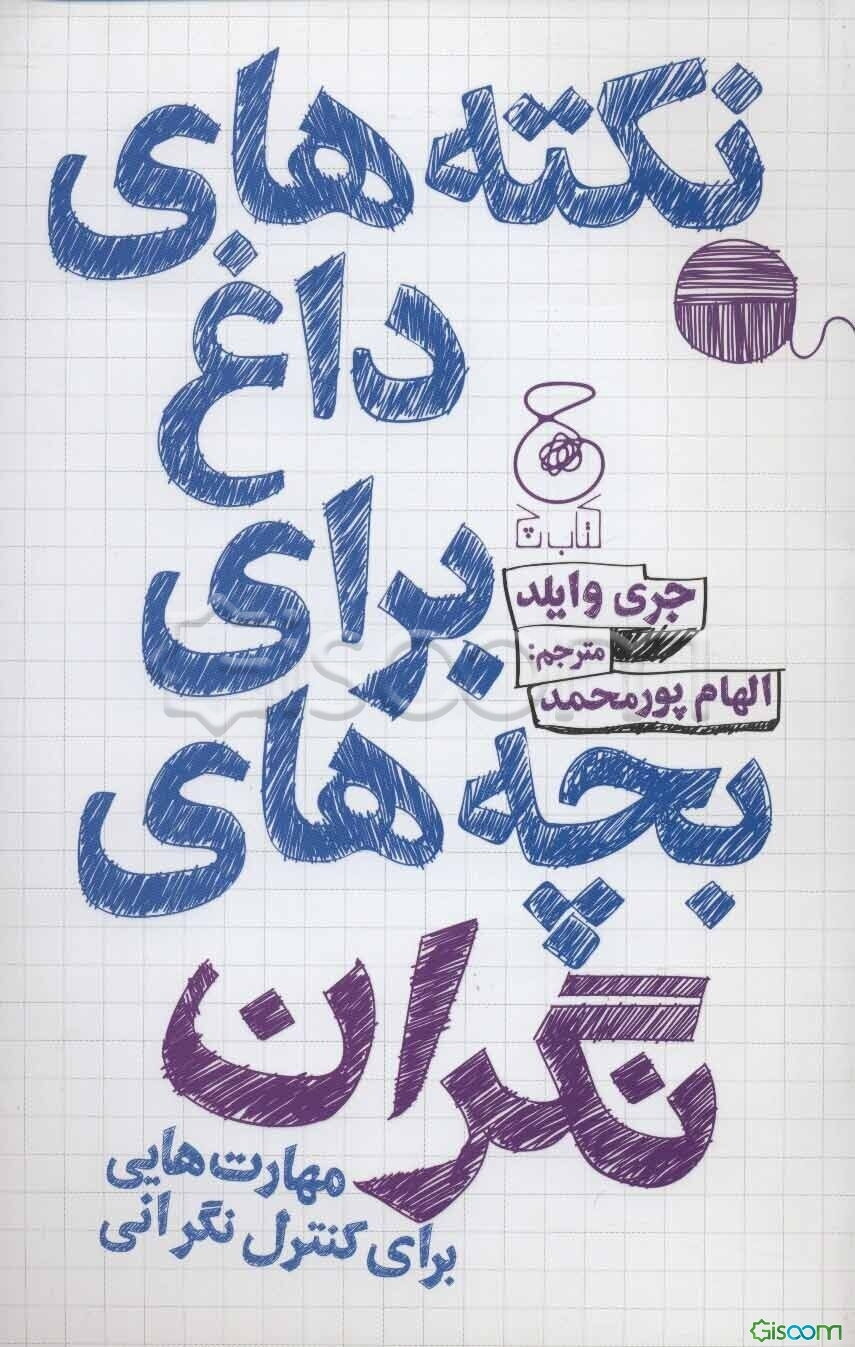 نکته‌های
داغ
برای
بچه‌های
نگران
مهارت‌هایی
برای کنترل نگرانی
کتاب چ
جری وایلد
مترجم:
الهام پورمحمد
Gisoom
Gisoom